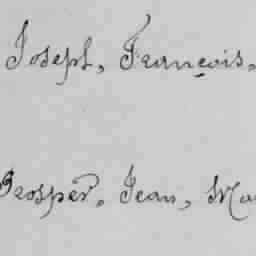 Joseph, François.
Prosper. Jean, Ma